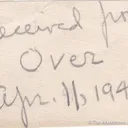 eceived fro
Over
Apr. 11, 194